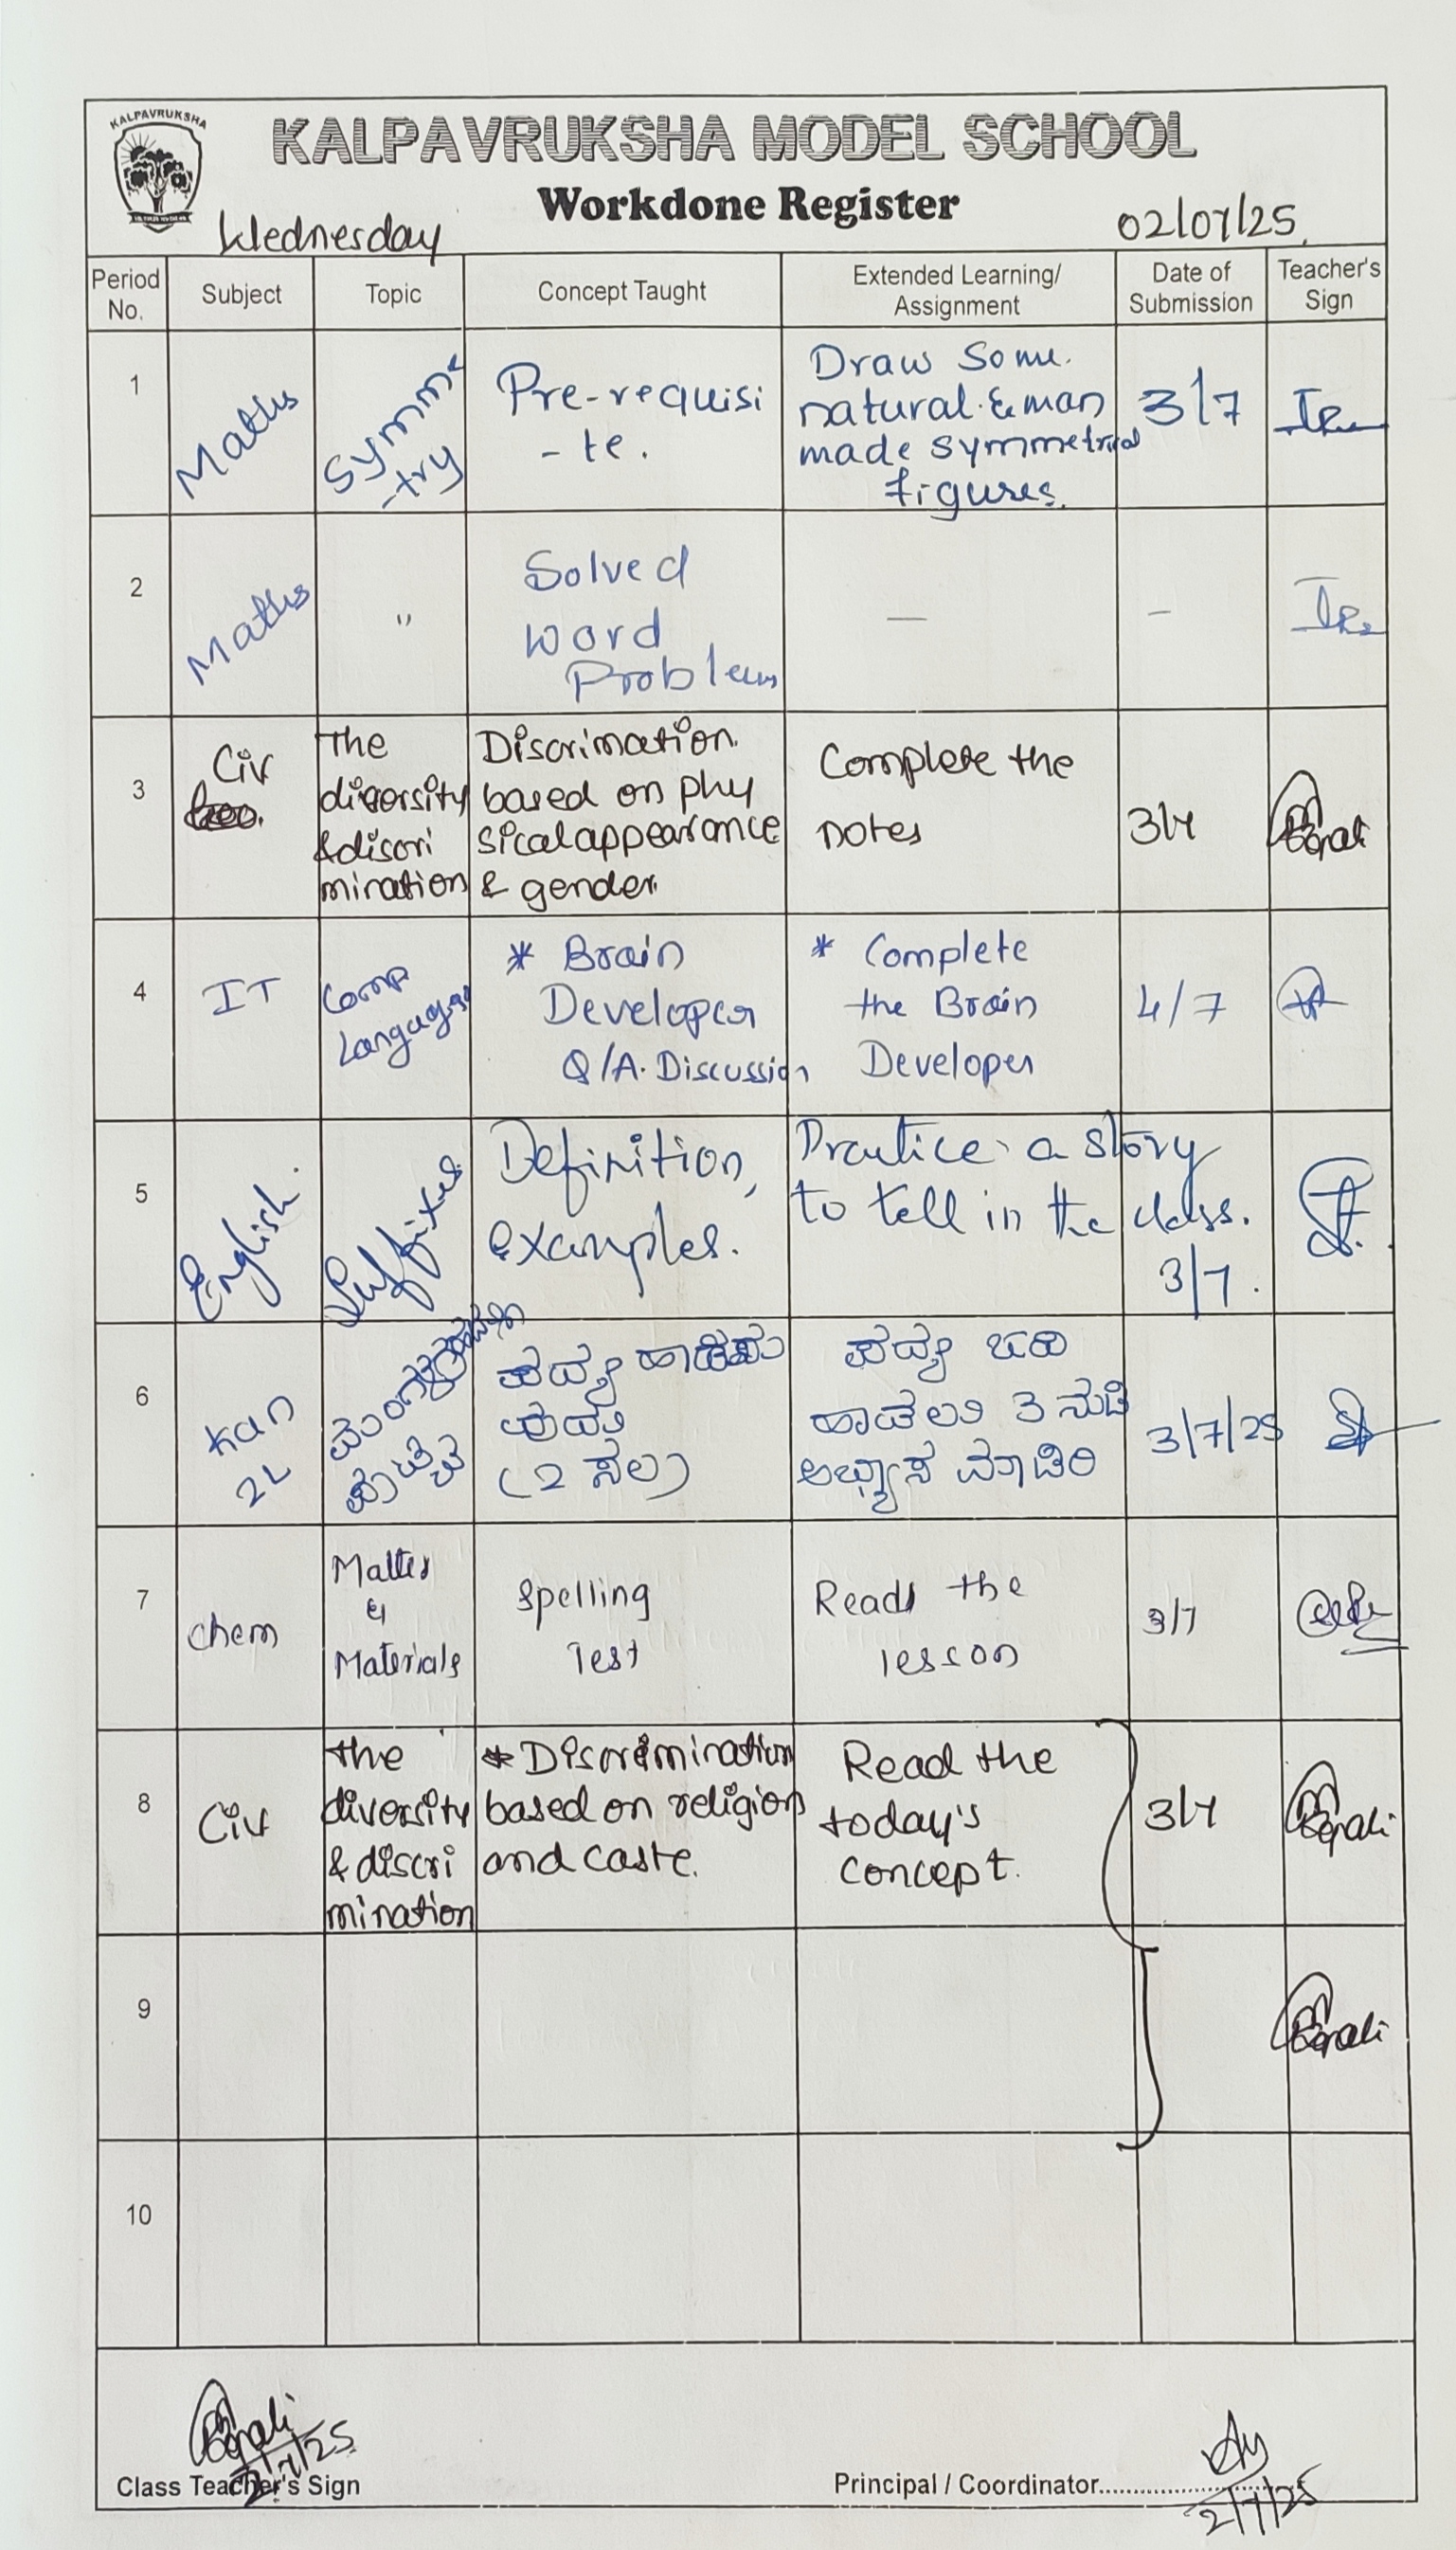 KALPAVRUKSHA
KALPAVRUKSHA MODEL SCHOOL
Workdone Register
Wednesday
02/07/25
Period No.
Subject
Topic
Concept Taught
Extended Learning/
Assignment
Date of
Submission
Teacher's
Sign
1
Maths
Symme
-try
Pre-requisi
-te.
Draw Some
natural & man
made symmetrical
figures.
3/7
2
Maths
"
Solved
word
Problems
—
–
3
Civ
The
diversity
& discri
mination
Discrimation
based on phy
sical appearance
& gender.
Complete the
notes
3/7
4
IT
Comp
Languages
* Brain
Developer
Q/A. Discussion
* Complete
the Brain
Developer
4/7
5
English.
Suffixes
Definition,
examples.
Practice a story
to tell in the class.
3/7.
6
Kan
2L
ಪದ್ಯ
(2 ಸಲ)
ಪದ್ಯ
3 ನುಡಿ
ಅಭ್ಯಾಸ ಮಾಡಿರಿ
3/7/25
7
chem
Matter
&
Materials
Spelling
Test
Read the
lesson
3/7
8
Civ
the
diversity
& discri
mination
* Discrimination
based on religion
and caste.
Read the
today's
concept.
3/7
9
10
2/7/25
Class Teacher's Sign
Principal / Coordinator..............................
2/7/25